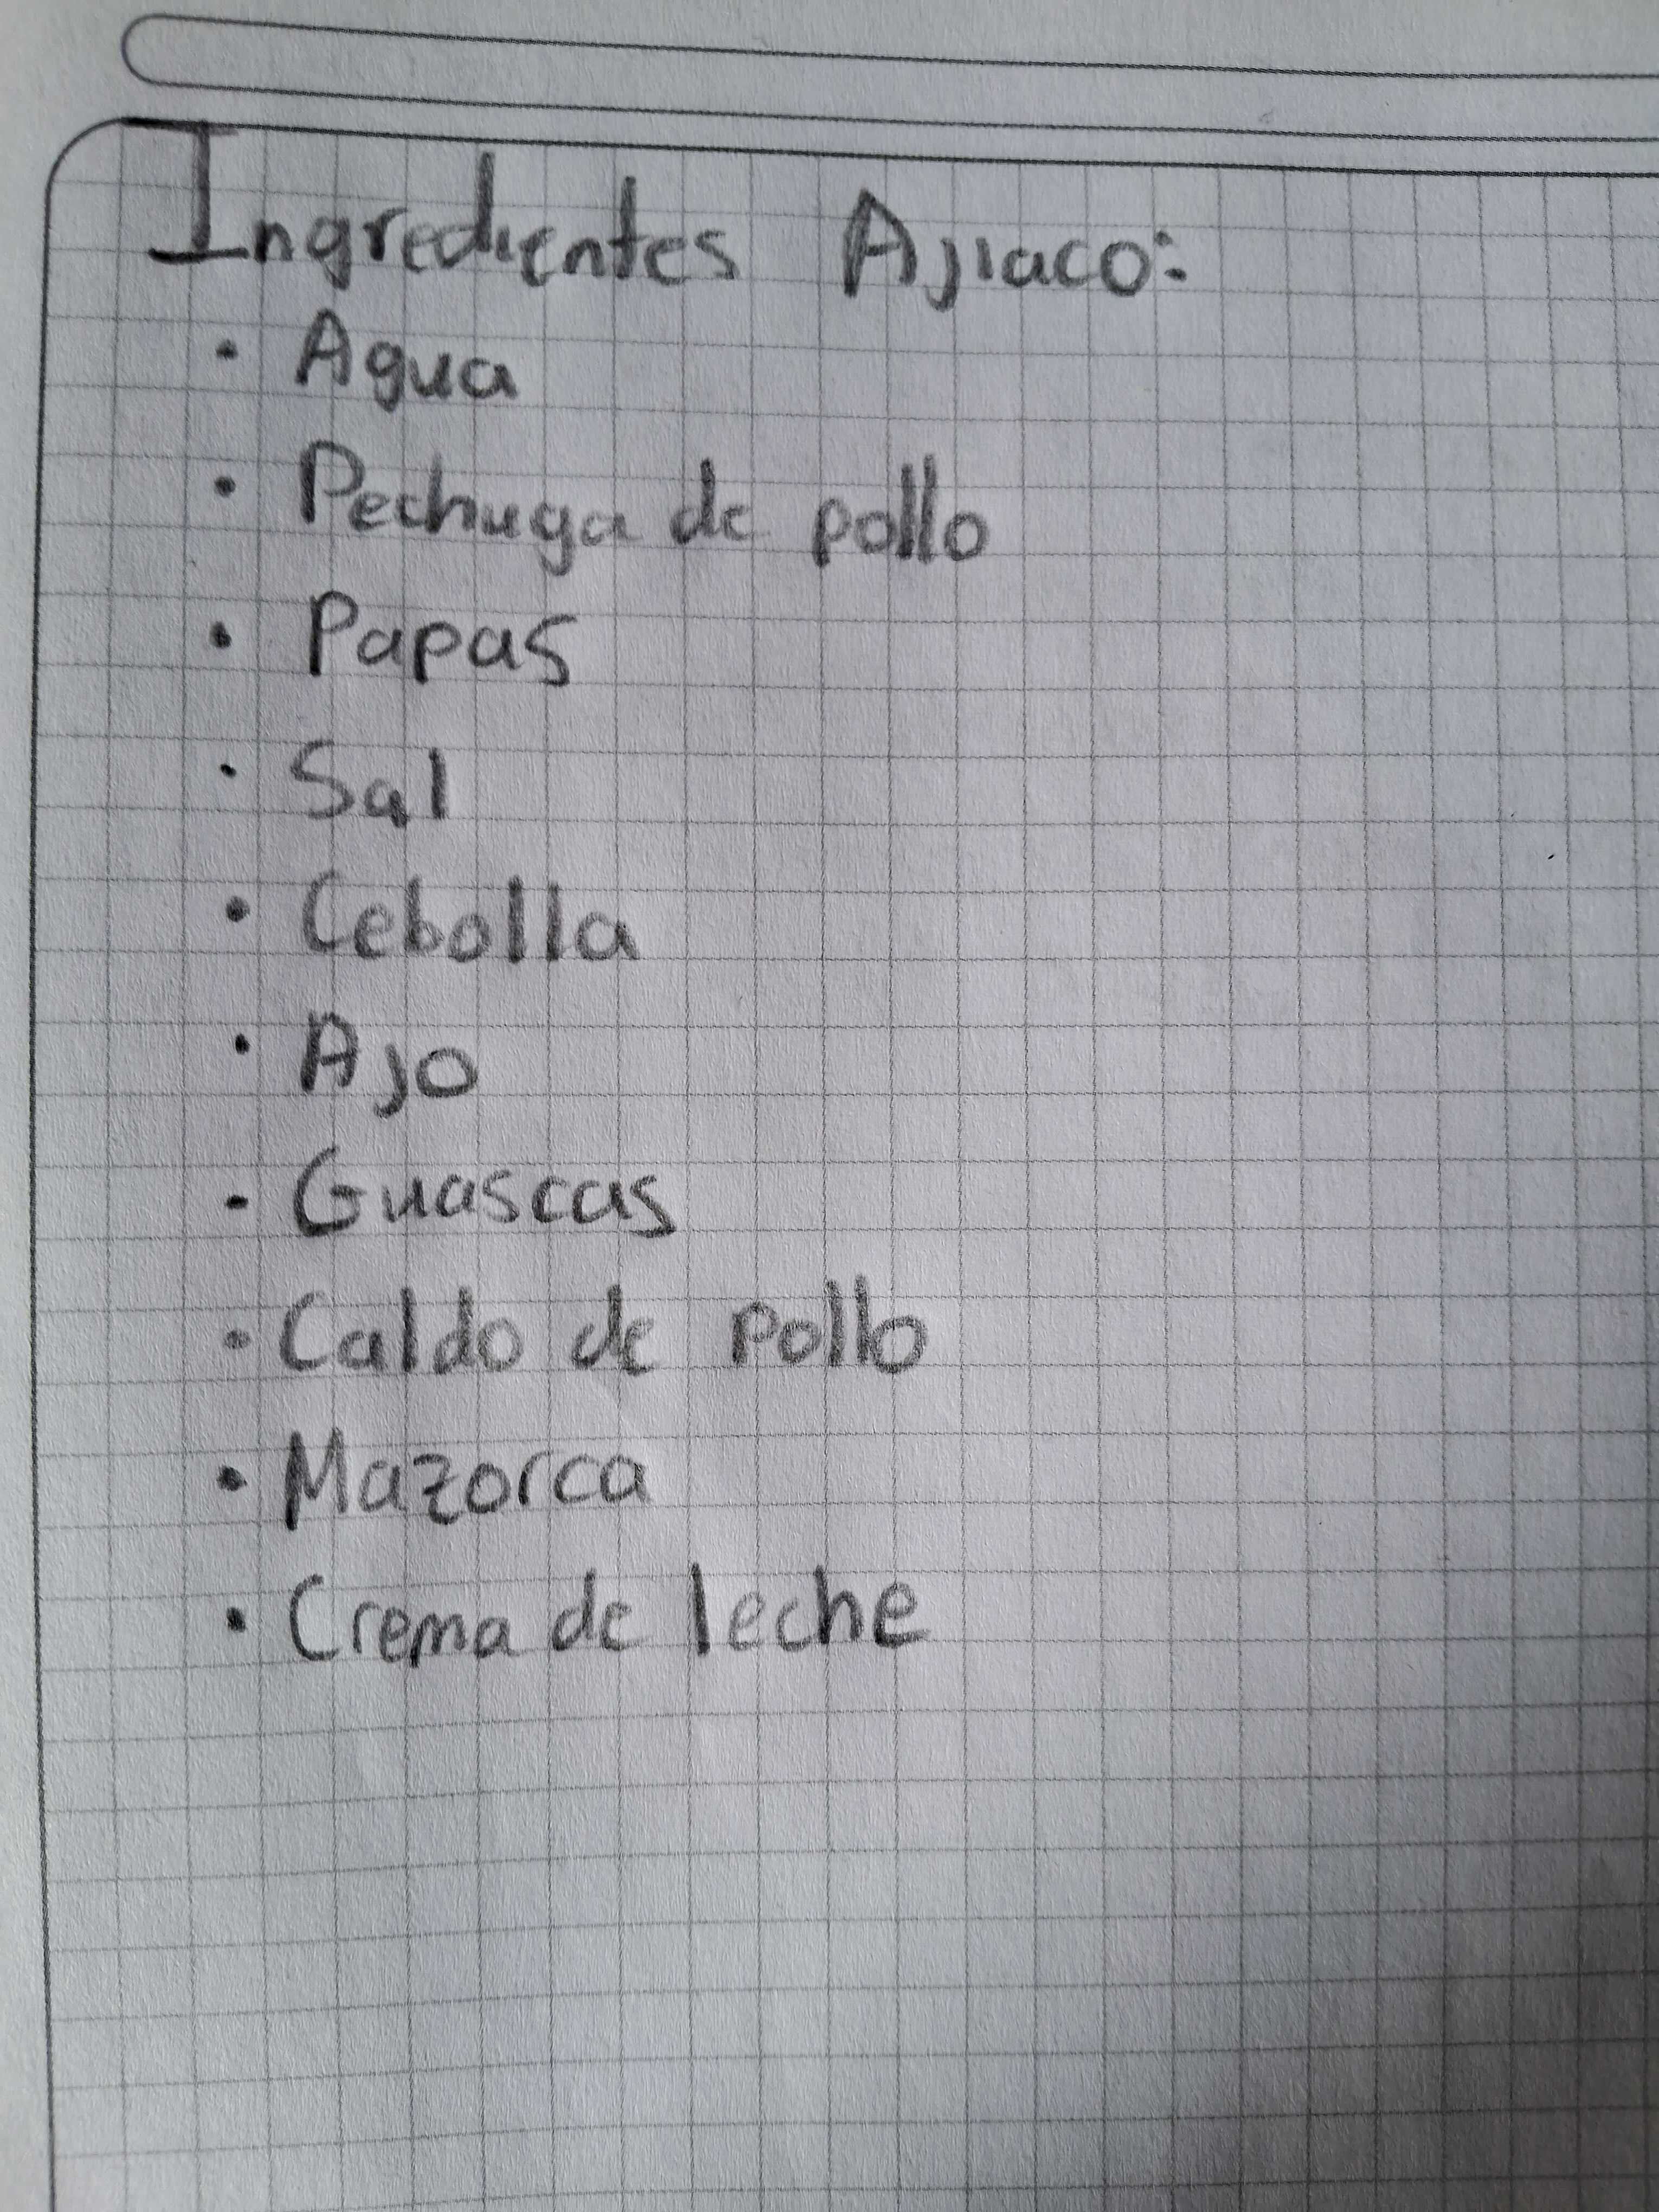 Ingredientes Ajiaco:
• Agua
• Pechuga de pollo
• Papas
• Sal
• Cebolla
• Ajo
• Guascas
• Caldo de pollo
• Mazorca
• Crema de leche